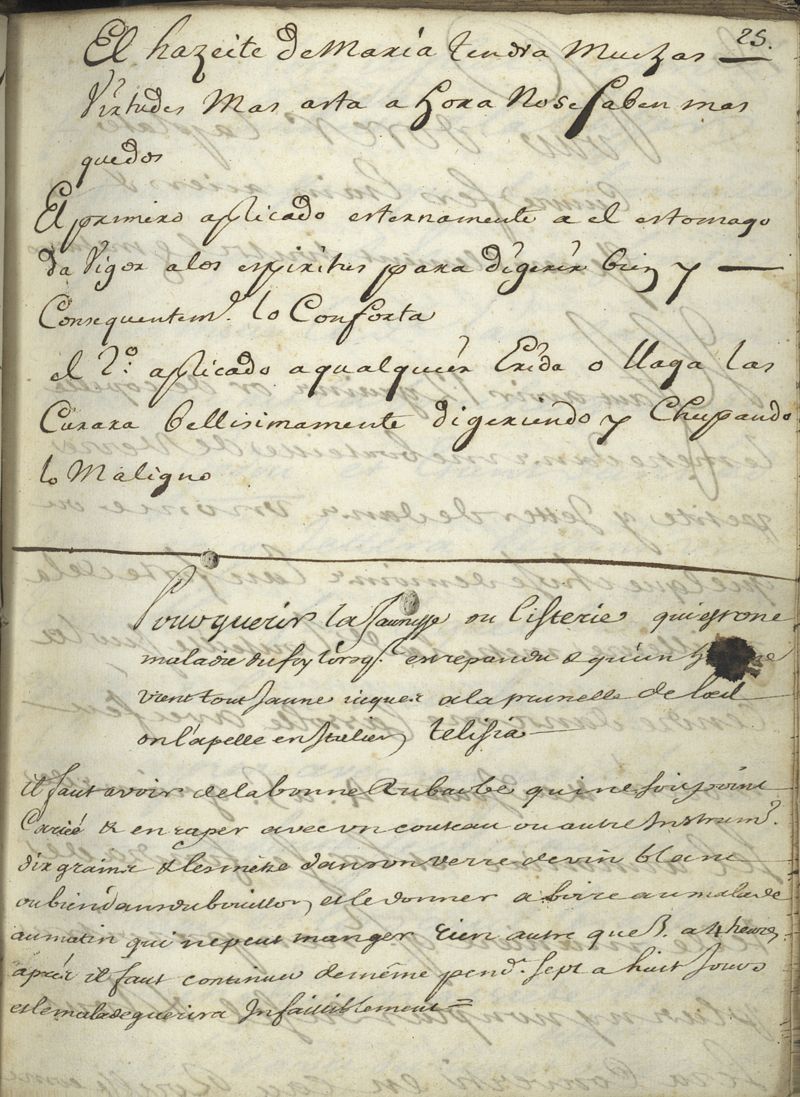 25.
El hazeite de Maria tendra Muchas
Virtudes Mas asta a hora No se saben mas
que dos
El primero aplicado esternamente a el estomago
da Vigor a los espiritus para digerir bien y
Consequentem.te lo Conforta
el 2º. aplicado a qualquier Erida o llaga las
Curara bellisimamente digeriendo y Chupando
lo Maligno
Pour querir la Jaunisse ou listerie qui est one
maladie du foy lorsq. en repandu & qu'un
vient tout Jaune jusques a la prunelle de l'œil
on l'apelle en Italien telisia
il faut avoir de la bonne Rubarbe qui ne soit point
Cariée & en raper avec un couteau ou autre Instrum.t
dix grains & les mètre dans un verre de vin blanc
ou bien dans du bouillon et le donner a boire au malade
au matin qui ne peut manger rien autre que 3. a 4 heures
après il faut continuer de même pend.t sept a huit Jours
et le malade guerira Infailliblement =